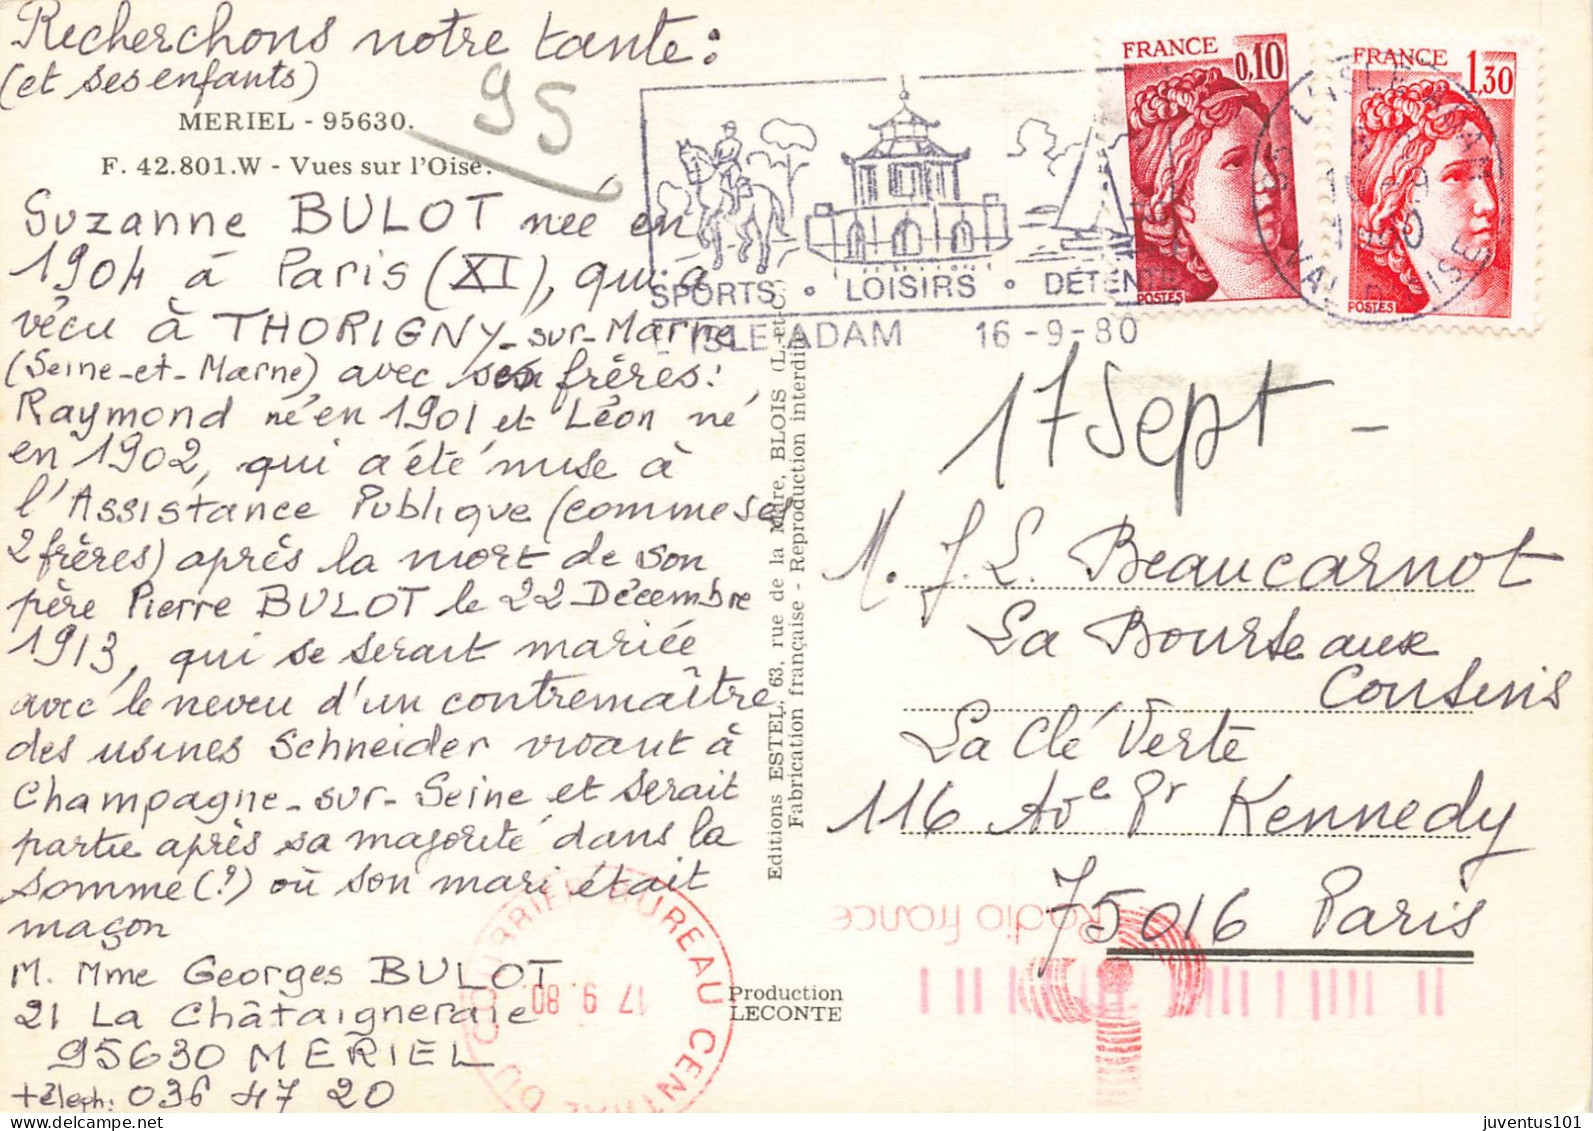 Recherchons notre tante :
(et ses enfants)
95
MERIEL - 95630.
F. 42.801.W - Vues sur l'Oise.
Suzanne BULOT née en
1904 à Paris (XI), qui a
vécu à THORIGNY-sur-Marne
(Seine-et-Marne) avec ses frères :
Raymond né en 1901 et Léon né
en 1902, qui a été mise à
l'Assistance Publique (comme ses
2 frères) après la mort de son
père Pierre BULOT le 22 Décembre
1913, qui se serait mariée
avec le neveu d'un contremaître
des usines Schneider vivant à
Champagne-sur-Seine et serait
partie après sa majorité dans la
Somme (?) où son mari était
maçon
M. Mme Georges BULOT
21 La Châtaigneraie
95630 MERIEL
téleph: 036 47 20
Editions ESTEL, 63, rue de la Mare, BLOIS (L.-et-C.)
Fabrication française - Reproduction interdite
Production
LECONTE
SPORTS • LOISIRS • DETENTE
L'ISLE ADAM 16-9-80
FRANCE
0,10
POSTES
FRANCE
1,30
POSTES
L'ISLE ADAM
VAL D'OISE
17 Sept -
M. J. L. Beaucarnot
La Bourse aux
Cousins
La Clé Verte
116 Ave Pr Kennedy
75016 Paris
Radio france
COURRIER BUREAU CENTRAL DU
17 9. 80
juventus101